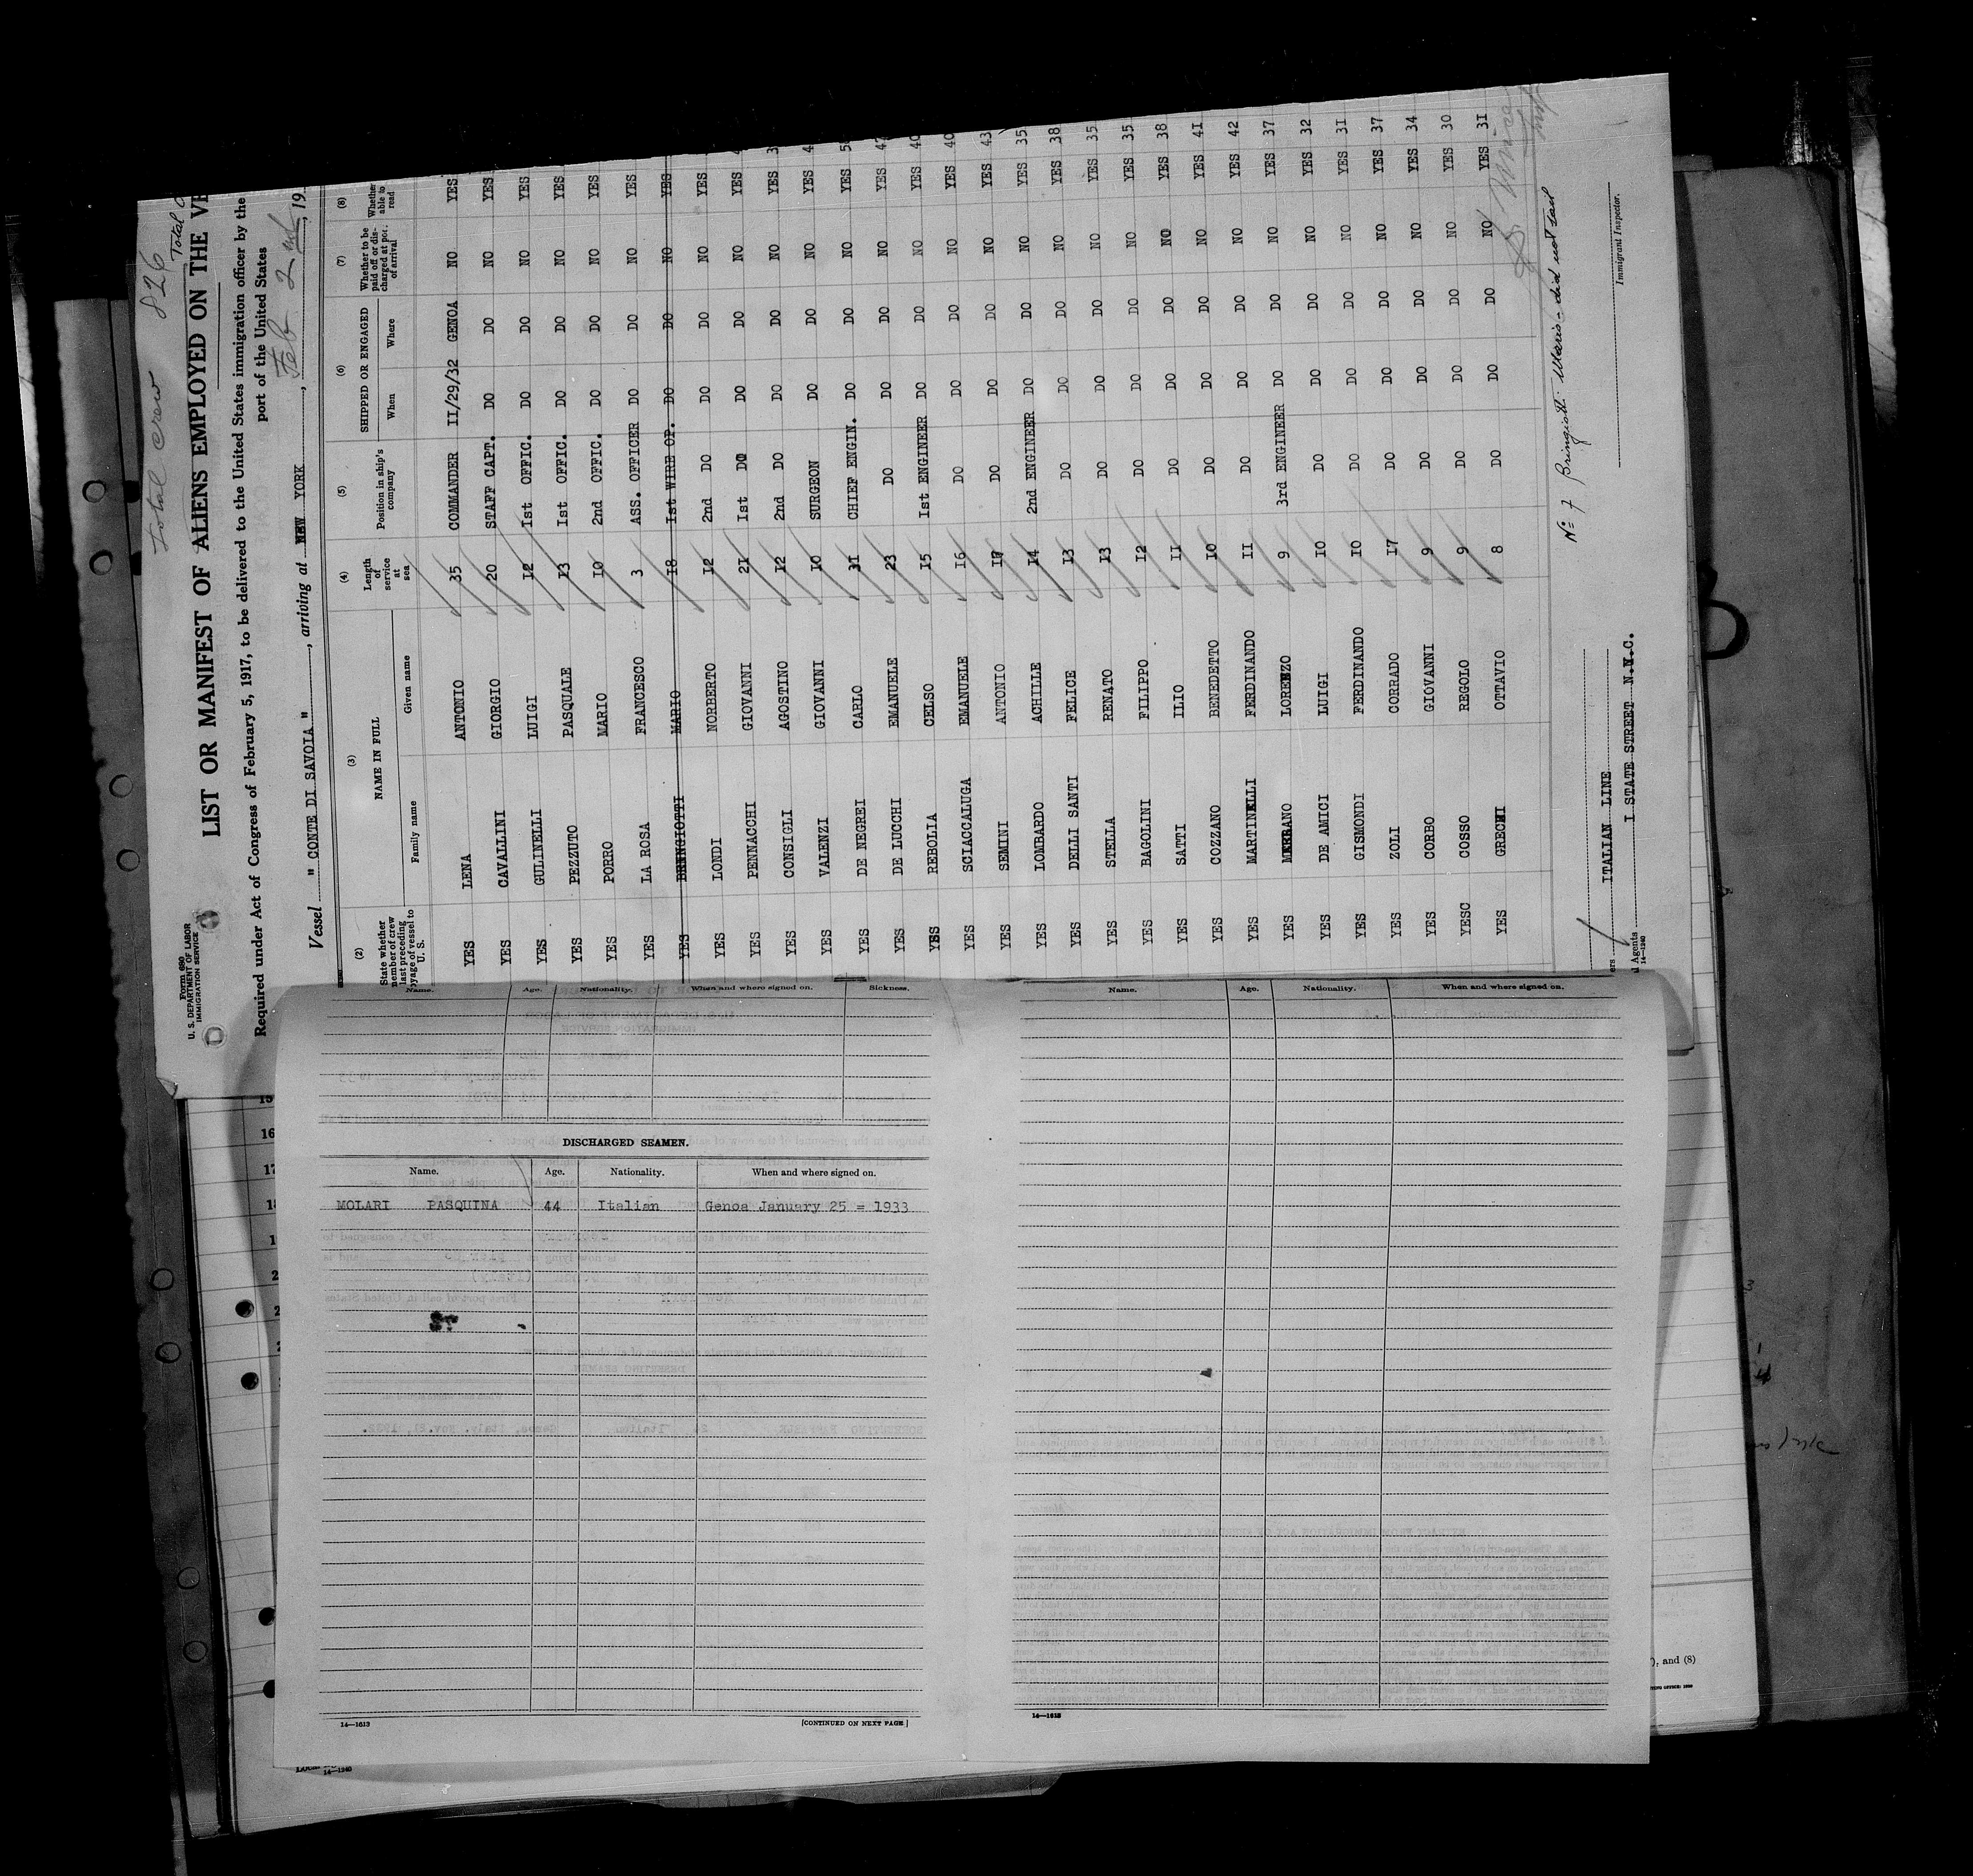 total crew 826
Total
Form 680
U. S. DEPARTMENT OF LABOR
IMMIGRATION SERVICE
LIST OR MANIFEST OF ALIENS EMPLOYED ON THE VE
Required under Act of Congress of February 5, 1917, to be delivered to the United States immigration officer by the
port of the United States
Vessel " CONTE DI SAVOIA ", arriving at NEW YORK, Feb 2nd, 19
(2) (3) (4) (5) (6) (7) (8)
State whether member of crew last preceding voyage of vessel to U. S.
NAME IN FULL
Family name Given name
Length of service at sea
Position in ship's company
SHIPPED OR ENGAGED
When Where
Whether to be paid off or discharged at port of arrival
Whether able to read
YES LENA ANTONIO 35 COMMANDER II/29/32 GENOA NO YES
YES CAVALLINI GIORGIO 20 STAFF CAPT. DO DO NO YES
YES GULINELLI LUIGI I2 Ist OFFIC. DO DO NO YES
YES PEZZUTO PASQUALE I3 Ist OFFIC. DO DO NO YES
YES PORRO MARIO IO 2nd OFFIC. DO DO NO YES
YES LA ROSA FRANCESCO 3 ASS. OFFICER DO DO NO YES
YES BRINGIOTTI MARIO I8 Ist WIRE OP. DO DO NO YES
YES LONDI NORBERTO I2 2nd DO DO DO NO YES
YES PENNACCHI GIOVANNI 2I Ist DO DO DO NO YES
YES CONSIGLI AGOSTINO I2 2nd DO DO DO NO YES
YES VALENZI GIOVANNI IO SURGEON DO DO NO YES
YES DE NEGREI CARLO 3I CHIEF ENGIN. DO DO NO YES
YES DE LUCCHI EMANUELE 23 DO DO DO NO YES
YES REBOLIA CELSO I5 Ist ENGINEER DO DO NO YES
YES SCIACCALUGA EMANUELE I6 DO DO DO NO YES 40
YES SEMINI ANTONIO I7 DO DO DO NO YES 43
YES LOMBARDO ACHILLE I4 2nd ENGINEER DO DO NO YES 35
YES DELLI SANTI FELICE I3 DO DO DO NO YES 38
YES STELLA RENATO I3 DO DO DO NO YES 35
YES BAGOLINI FILIPPO I2 DO DO DO NO YES 35
YES SATTI ILIO II DO DO DO NO YES 38
YES COZZANO BENEDETTO IO DO DO DO NO YES 4I
YES MARTINELLI FERDINANDO II DO DO DO NO YES 42
YES MERRANO LORENZO 9 3rd ENGINEER DO DO NO YES 37
YES DE AMICI LUIGI IO DO DO DO NO YES 32
YES GISMONDI FERDINANDO IO DO DO DO NO YES 3I
YES ZOLI CORRADO I7 DO DO DO NO YES 37
YES CORBO GIOVANNI 9 DO DO DO NO YES 34
YESC COSSO REGOLO 9 DO DO DO NO YES 30
YES GRECHI OTTAVIO 8 DO DO DO NO YES 3I
No 7 Bringiotti Mario - did not sail
Immigrant Inspector.
ers ITALIAN LINE
d Agents I STATE STREET N.Y.C.
14—1240
Name. Age. Nationality. When and where signed on. Sickness.
DISCHARGED SEAMEN.
Name. Age. Nationality. When and where signed on.
MOLARI PASQUINA 44 Italian Genoa January 25 = 1933
14—1613
[CONTINUED ON NEXT PAGE.]
Name. Age. Nationality. When and where signed on.
14—1613
15
16
), and (8)
14—1240